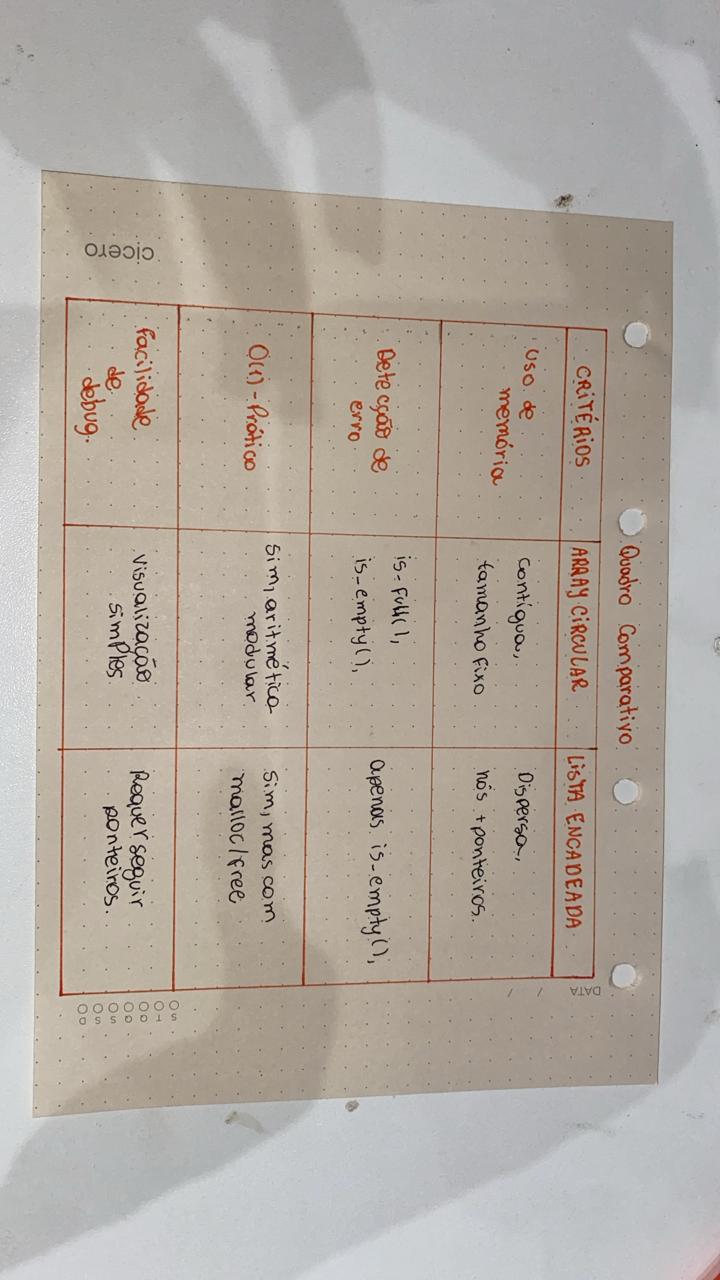 Quadro Comparativo
DATA / /
CRITÉRIOS ARRAY CIRCULAR LISTA ENCADEADA
Uso de
memória
Contígua,
tamanho fixo
Dispersa,
nós + ponteiros.
Detecção de
erro
is-full(),
is-empty(),
apenas is-empty(),
O(1) - Prático
Sim, aritmética
modular
Sim, mas com
malloc/free
Facilidade
de
debug.
Visualização
simples
Requer seguir
ponteiros.
cicero
S T Q Q S S D